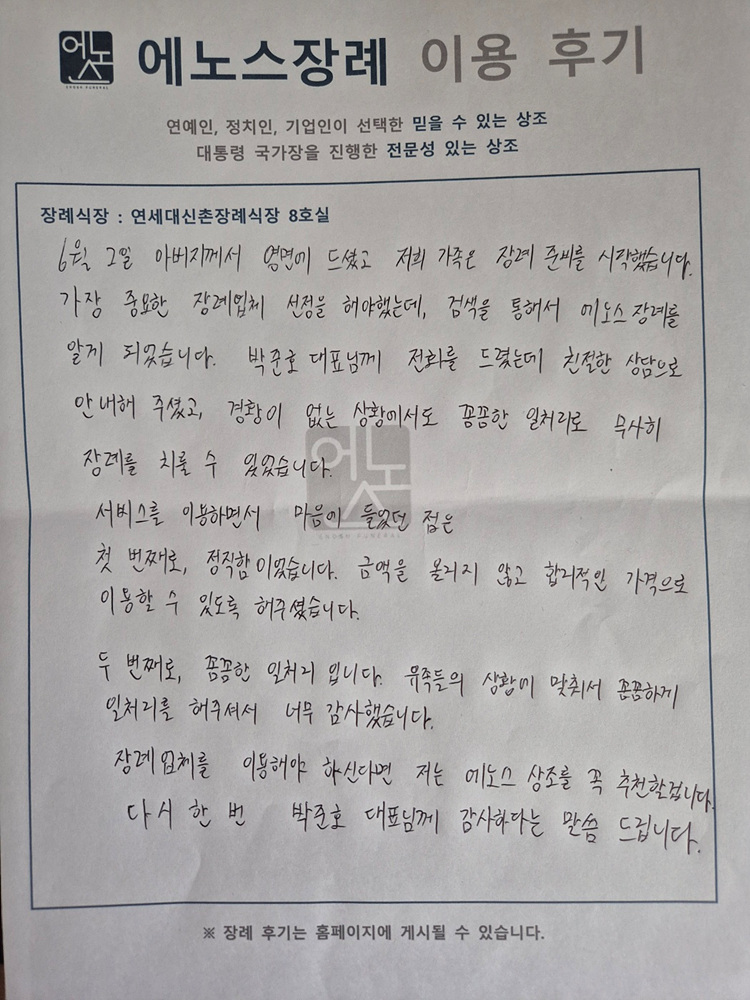 에노스 ENOSH FUNERAL
에노스장례 이용 후기
연예인, 정치인, 기업인이 선택한 믿을 수 있는 상조
대통령 국가장을 진행한 전문성 있는 상조
장례식장 : 연세대신촌장례식장 8호실
6월 2일 아버지께서 영면에 드셨고 저희 가족은 장례 준비를 시작했습니다.
가장 중요한 장례업체 선정을 해야했는데, 검색을 통해서 에노스 장례를
알게 되었습니다. 박준호 대표님께 전화를 드렸는데 친절한 상담으로
안내해 주셨고, 경황이 없는 상황에서도 꼼꼼한 일처리로 무사히
장례를 치룰 수 있었습니다.
에노스 ENOSH FUNERAL
서비스를 이용하면서 마음에 들었던 점은
첫 번째로, 정직함이었습니다. 금액을 올리지 않고 합리적인 가격으로
이용할 수 있도록 해주셨습니다.
두 번째로, 꼼꼼한 일처리 입니다. 유족들의 상황에 맞춰서 꼼꼼하게
일처리를 해주셔서 너무 감사했습니다.
장례업체를 이용해야 하신다면 저는 에노스 상조를 꼭 추천할겁니다.
다시 한 번 박준호 대표님께 감사하다는 말씀 드립니다.
※ 장례 후기는 홈페이지에 게시될 수 있습니다.